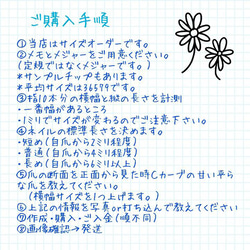 ご購入手順
①当店はサイズオーダーです。
②メモとメジャーをご用意ください。
(定規ではなくメジャーです。)
*サンプルチップもあります。
*平均サイズは36579です。
③指10本分の横幅と縦の長さを計測
・一番幅があるところ
・1ミリでサイズが変わるのでご注意下さい。
④ネイルの標準長さを決めます。
・短め(自爪から2ミリ程度)
・普通(自爪から4ミリ程度)
・長め(自爪から6ミリ以上)
⑤爪の断面を正面から見た時にカーブの甘い平らな爪を教えてください。
(横幅サイズを1つ上げます。)
⑥上記の情報を写真or打ち込んで教えてください
⑦作成・購入・ご入金(順不同)
⑧画像確認→発送